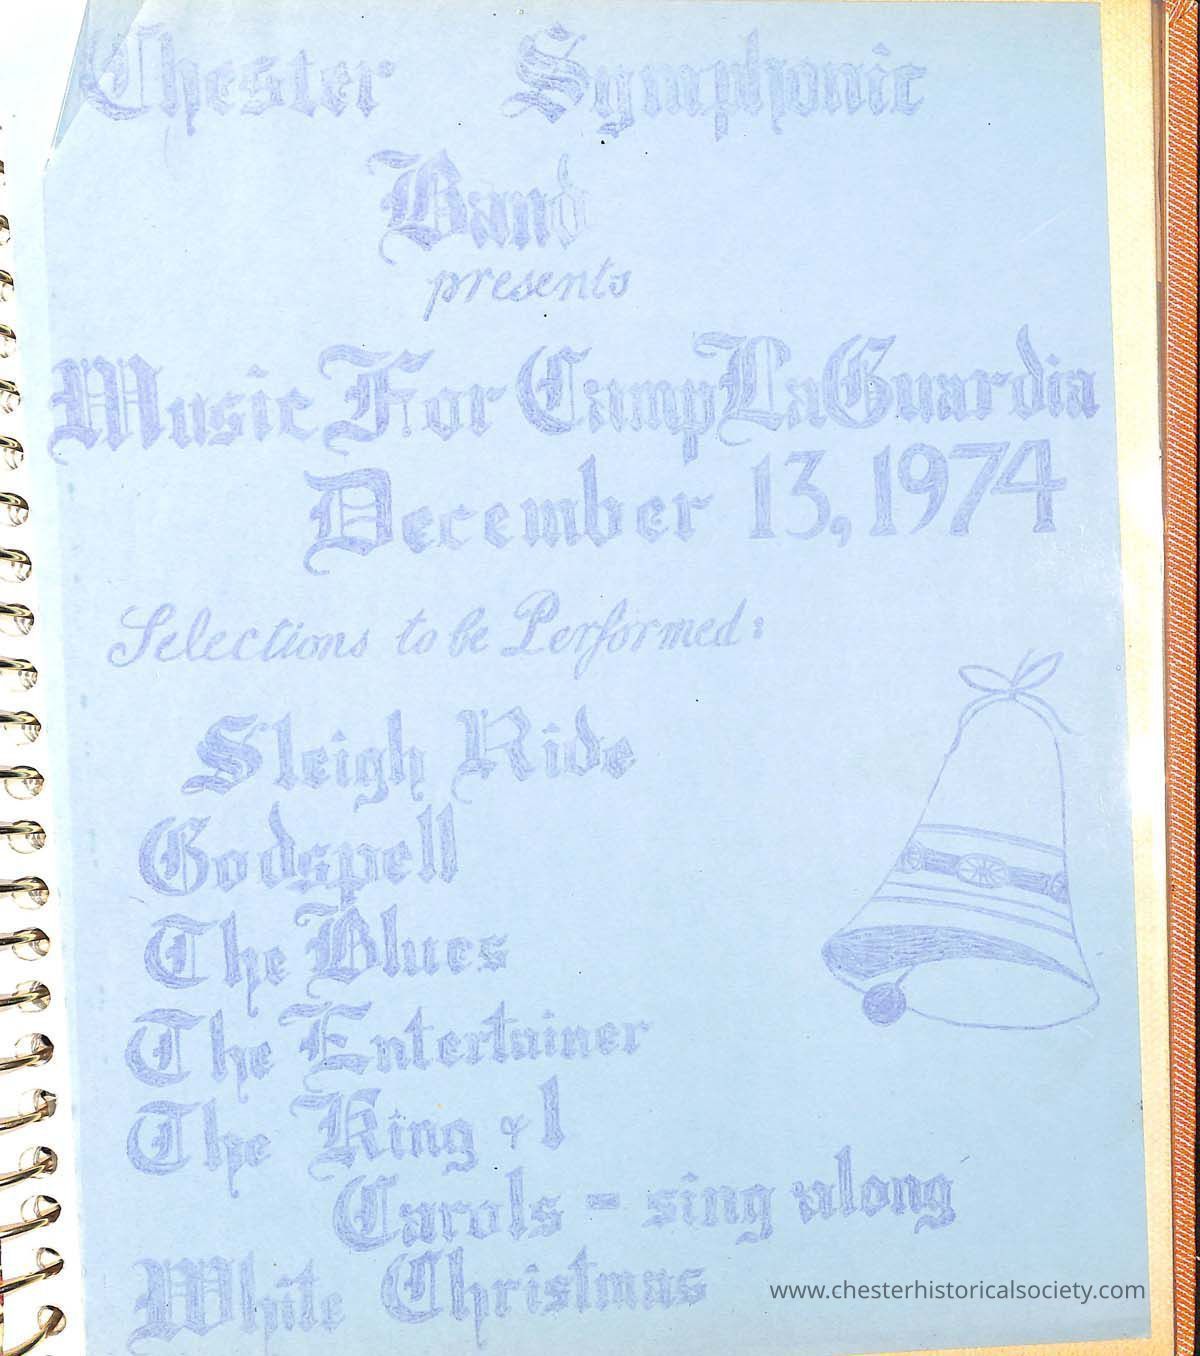 Chester Symphonic
Band
presents
Music For Camp LaGuardia
December 13, 1974
Selections to be Performed:
Sleigh Ride
Godspell
The Blues
The Entertainer
The King & I
Carols - sing along
White Christmas
www.chesterhistoricalsociety.com